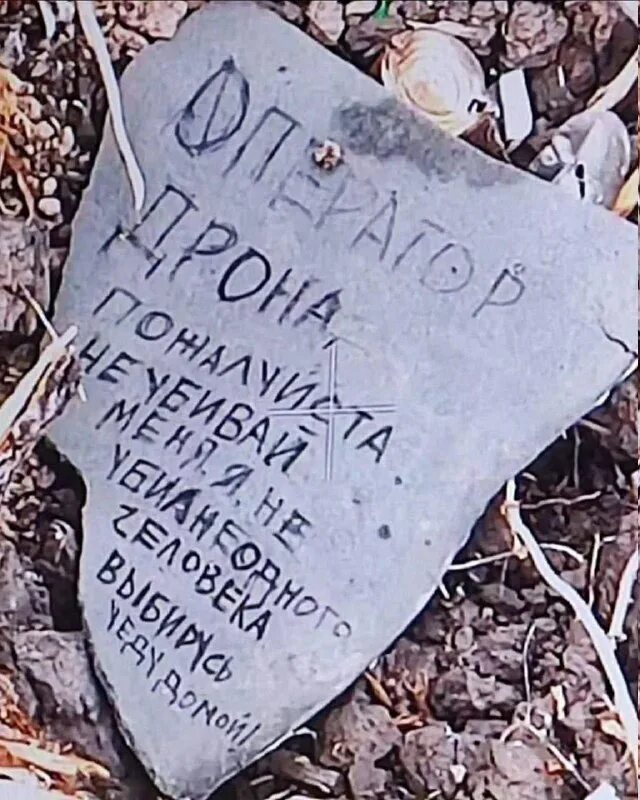 ОПЕРАТОР
ДРОНА,
ПОЖАЛЧИСТА
НЕ УБИВАЙ
МЕНЯ. Я. НЕ
УБИЛНЕОДНОГО
ZЕЛОВЕКА
ВЫБИРУСЬ
УЕДУ ДОМОЙ!